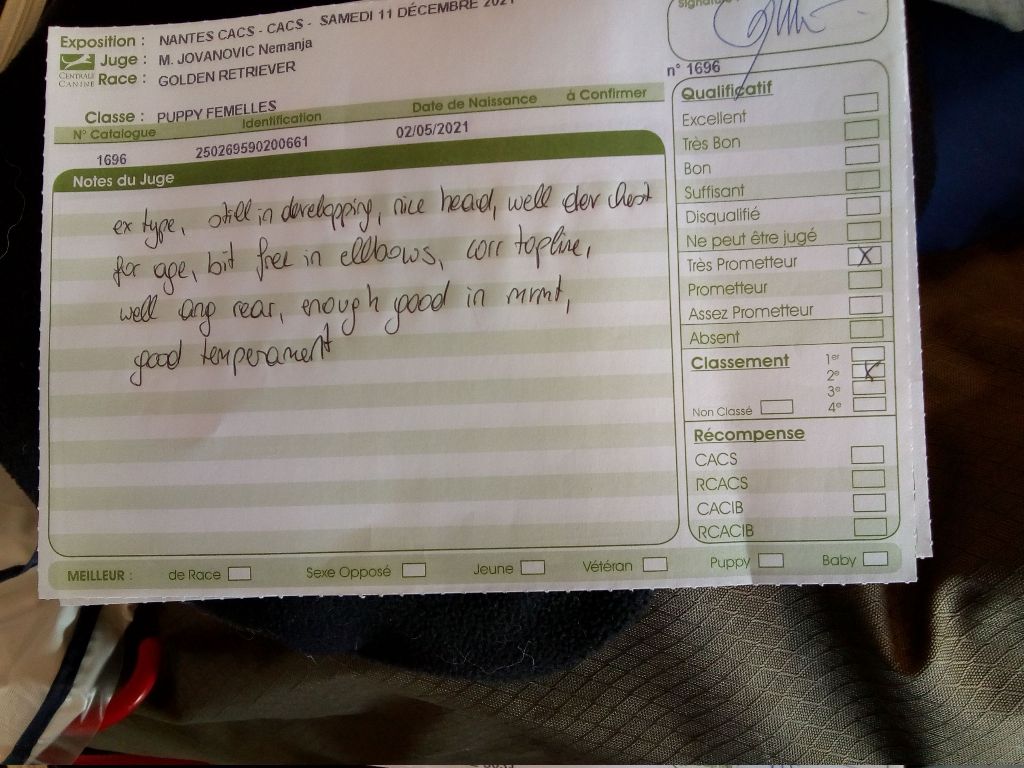 Exposition : NANTES CACS - CACS - SAMEDI 11 DÉCEMBRE 2021
Juge : M. JOVANOVIC Nemanja
CENTRALE CANINE
Race : GOLDEN RETRIEVER
Classe : PUPPY FEMELLES
N° Catalogue Identification Date de Naissance à Confirmer
1696 250269590200661 02/05/2021
Notes du Juge
ex type, still in developping, nice head, well dev chest
for age, bit free in ellbows, corr topline,
well ang rear, enough good in mvmt,
good temperament
n° 1696
Qualificatif
Excellent
Très Bon
Bon
Suffisant
Disqualifié
Ne peut être jugé
Très Prometteur X
Prometteur
Assez Prometteur
Absent
Classement 1er
2e X
3e
Non Classé 4e
Récompense
CACS
RCACS
CACIB
RCACIB
MEILLEUR : de Race Sexe Opposé Jeune Vétéran Puppy Baby